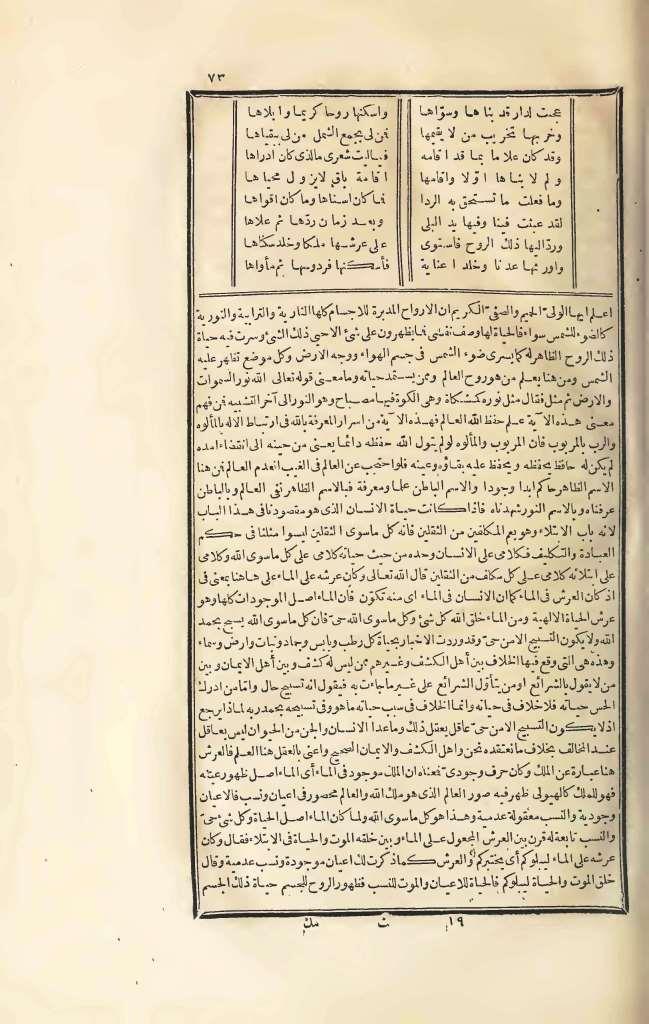 ٧٣
عجبت لدار قد بناها وسوّاها وأسكنها روحا كريما وأبلاها
وخربها تخريب من لا يقيمها فمن لى بجمع الشمل من لى ببقياها
وقد كان علاما بما قد أقامه فيا ليت شعرى ما الذى كان أدراها
ولم لا بناها أوّلا وأقامها اقامة باق لا يزول محياها
وما فعلت ما تستحق به الردا فما كان أسناها وما كان أقواها
لقد عبثت فينا وفيها يد البلى وبعد زمان ردّها ثم علاها
وردّ اليها ذلك الروح فاستوى على عرشها ملكا وخلد سكناها
وأورثها عدنا وخلدا عناية فأسكنها فردوسها ثم مأواها
اعلم أيها الولىّ الحيم والصفىّ الكريم ان الارواح المدبرة للاجسام كلها النارية والترابية والنورية
كالضوء للشمس سواء فالحياة لها وصف نفسىّ فما يظهرون على شئ الاحيى ذلك الشئ وسرت فيه حياة
ذلك الروح الظاهر له كما يسرى ضوء الشمس فى جسم الهواء ووجه الارض وكل موضع تظهر عليه
الشمس ومن هنا يعلم من هو روح العالم وممن يستمد حياته وما معنى قوله تعالى الله نور السموات
والارض ثم مثل فقال مثل نوره كمشكاة وهى الكوة فيها مصباح وهو النور الى آخر التشبيه فمن فهم
معنى هذه الآية علم حفظ الله العالم فهذه الآية من أسرار المعرفة بالله فى ارتباط الاله بالمألوه
والرب بالمربوب فان المربوب والمألوه لو لم يتول الله حفظه دائما يعنى من حينه الى انقضاء أمده
لم يكن له حافظ يحفظه ويحفظ عليه بقاؤه وعينه فلو احتجب عن العالم فى الغيب انعدم العالم فمن هنا
الاسم الظاهر حاكم أبدا وجودا والاسم الباطن علما ومعرفة فبالاسم الظاهر نفى العالم وبالباطن
عرفناه وبالاسم النور شهدناه فاذا كانت حياة الانسان الذى هو مقصودنا فى هذا الباب
لانه باب الابتلاء وهو يعم المكلفين من الثقلين فانه كل ماسوى الثقلين ليسوا مثلنا فى حكم
العبادة والتكليف فكلامى على الانسان وحده من حيث حياته كلامى على كل ماسوى الله وكلامى
على ابتلائه كلامى على كل مكلف من الثقلين قال الله تعالى وكان عرشه على الماء على هاهنا بمعنى فى
اذ كان العرش فى الماء كما ان الانسان فى الماء أى منه تكوّن فان الماء أصل الموجودات كلها وهو
عرش الحياة الالهية ومن الماء خلق الله كل شئ وكل ماسوى الله حىّ فان كل ماسوى الله يسبح بحمد
الله ولا يكون التسبيح الا من حىّ وقد وردت الاخبار بحياة كل رطب ويابس وجماد ونبات وأرض وسماء
وهذه هى التى وقع فيها الخلاف بين أهل الكشف وغيرهم ممن ليس له كشف وبين أهل الايمان وبين
من لا يقول بالشرائع أو من يتأوّل الشرائع على غير ما جاءت به فيقول انه تسبيح حال وأمّا من أدرك
الحس حياته فلا خلاف فى حياته وانما الخلاف فى سبب حياته ما هو وفى تسبيحه بحمد ربه لماذا يرجع
اذ لا يكون التسبيح الا من حىّ عاقل يعقل ذلك وماعدا الانسان والجن من الحيوان ليس بعاقل
عند المخالف بخلاف ما نعتقده نحن وأهل الكشف والايمان الصحيح وأعنى بالعقل هنا العلم فالعرش
هنا عبارة عن الملك وكان حرف وجودى فمعناه ان الملك موجود فى الماء أى الماء أصل ظهور عينه
فهو للملك كالهيولى ظهر فيه صور العالم الذى هو ملك الله والعالم محصور فى أعيان ونسب فالاعيان
وجودية والنسب معقولة عدمية وهذا هو كل ماسوى الله ولما كان الماء أصل الحياة وكل شئ حىّ
والنسب تابعة له قرن بين العرش المجعول على الماء وبين خلقه الموت والحياة فى الابتلاء فقال وكان
عرشه على الماء ليبلوكم أى يختبركم والعرش كما ذكرت لك أعيان موجودة ونسب عدمية وقال
خلق الموت والحياة ليبلوكم فالحياة للاعيان والموت للنسب فظهور الروح للجسم حياة ذلك الجسم
١٩ ث مك